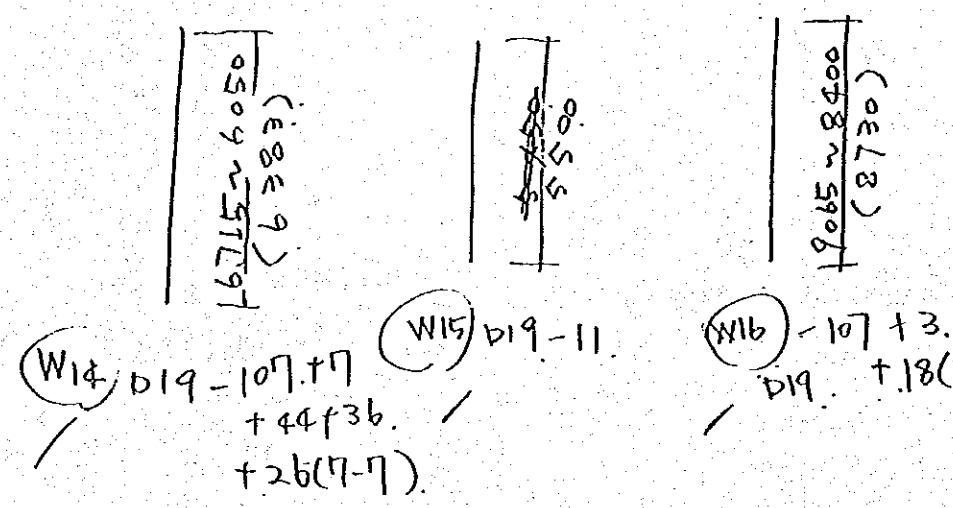 6715~6050
(6380)
5500
9065~8400
(8730)
W14 D19-107+7
+44+36.
+26(7-7).
W15 D19-11.
W16 -107+3.
D19. +18(